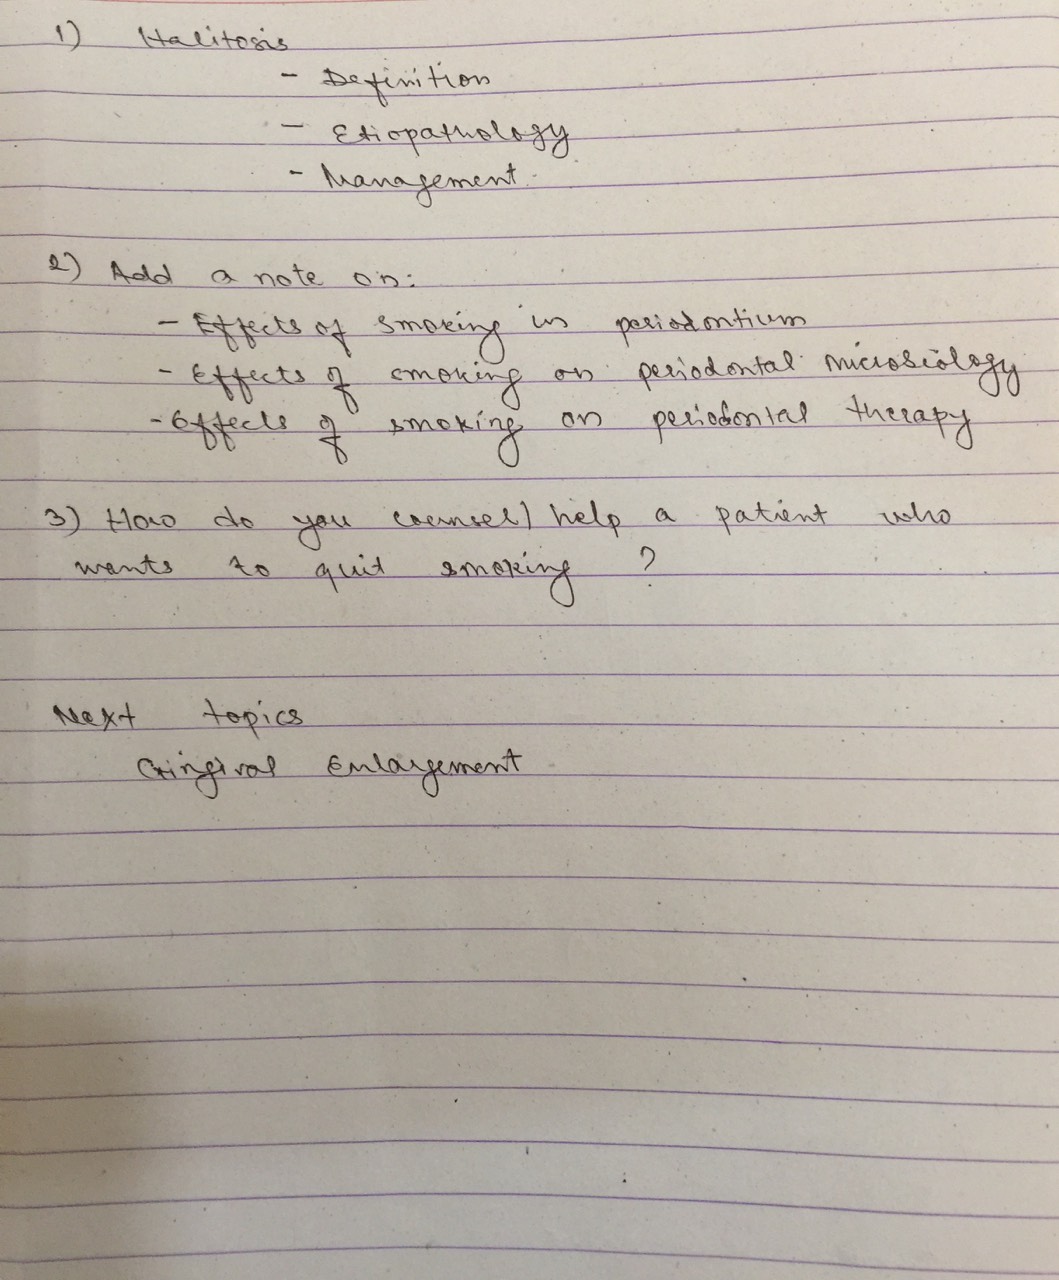 1) Halitosis
- Definition
- Etiopathology
- Management
2) Add a note on:
- Effects of smoking in periodontium
- Effects of smoking on periodontal microbiology
- Effects of smoking on periodontal therapy
3) How do you counsel/help a patient who
wants to quit smoking ?
Next topics
Gingival Enlargement